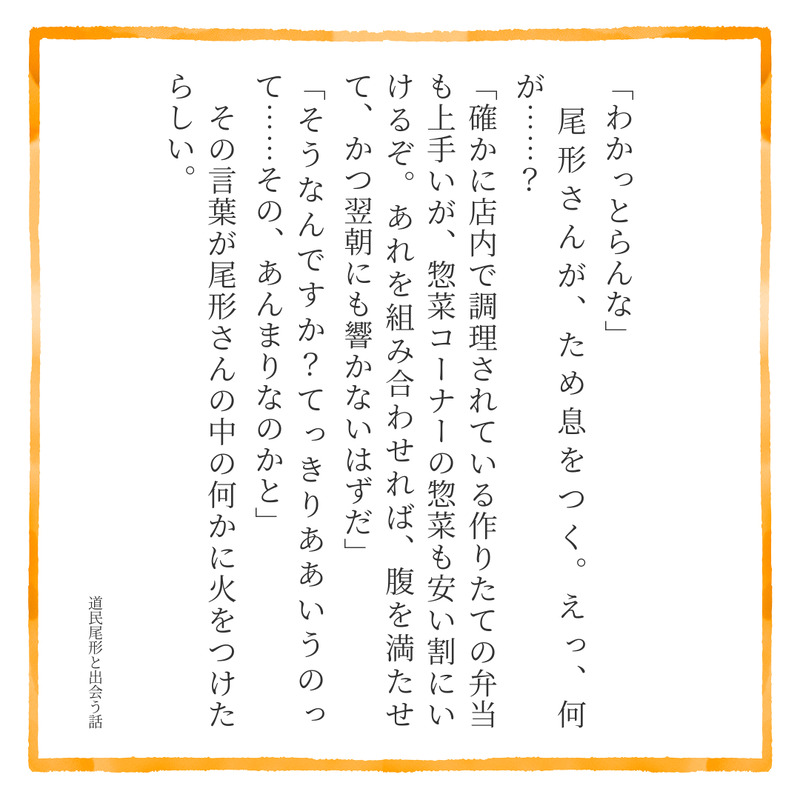 「わかっとらんな」
　尾形さんが、ため息をつく。えっ、何
が……？
「確かに店内で調理されている作りたての弁当
も上手いが、惣菜コーナーの惣菜も安い割にい
けるぞ。あれを組み合わせれば、腹を満たせ
て、かつ翌朝にも響かないはずだ」
「そうなんですか？てっきりああいうのっ
て……その、あんまりなのかと」
　その言葉が尾形さんの中の何かに火をつけた
らしい。
道民尾形と出会う話